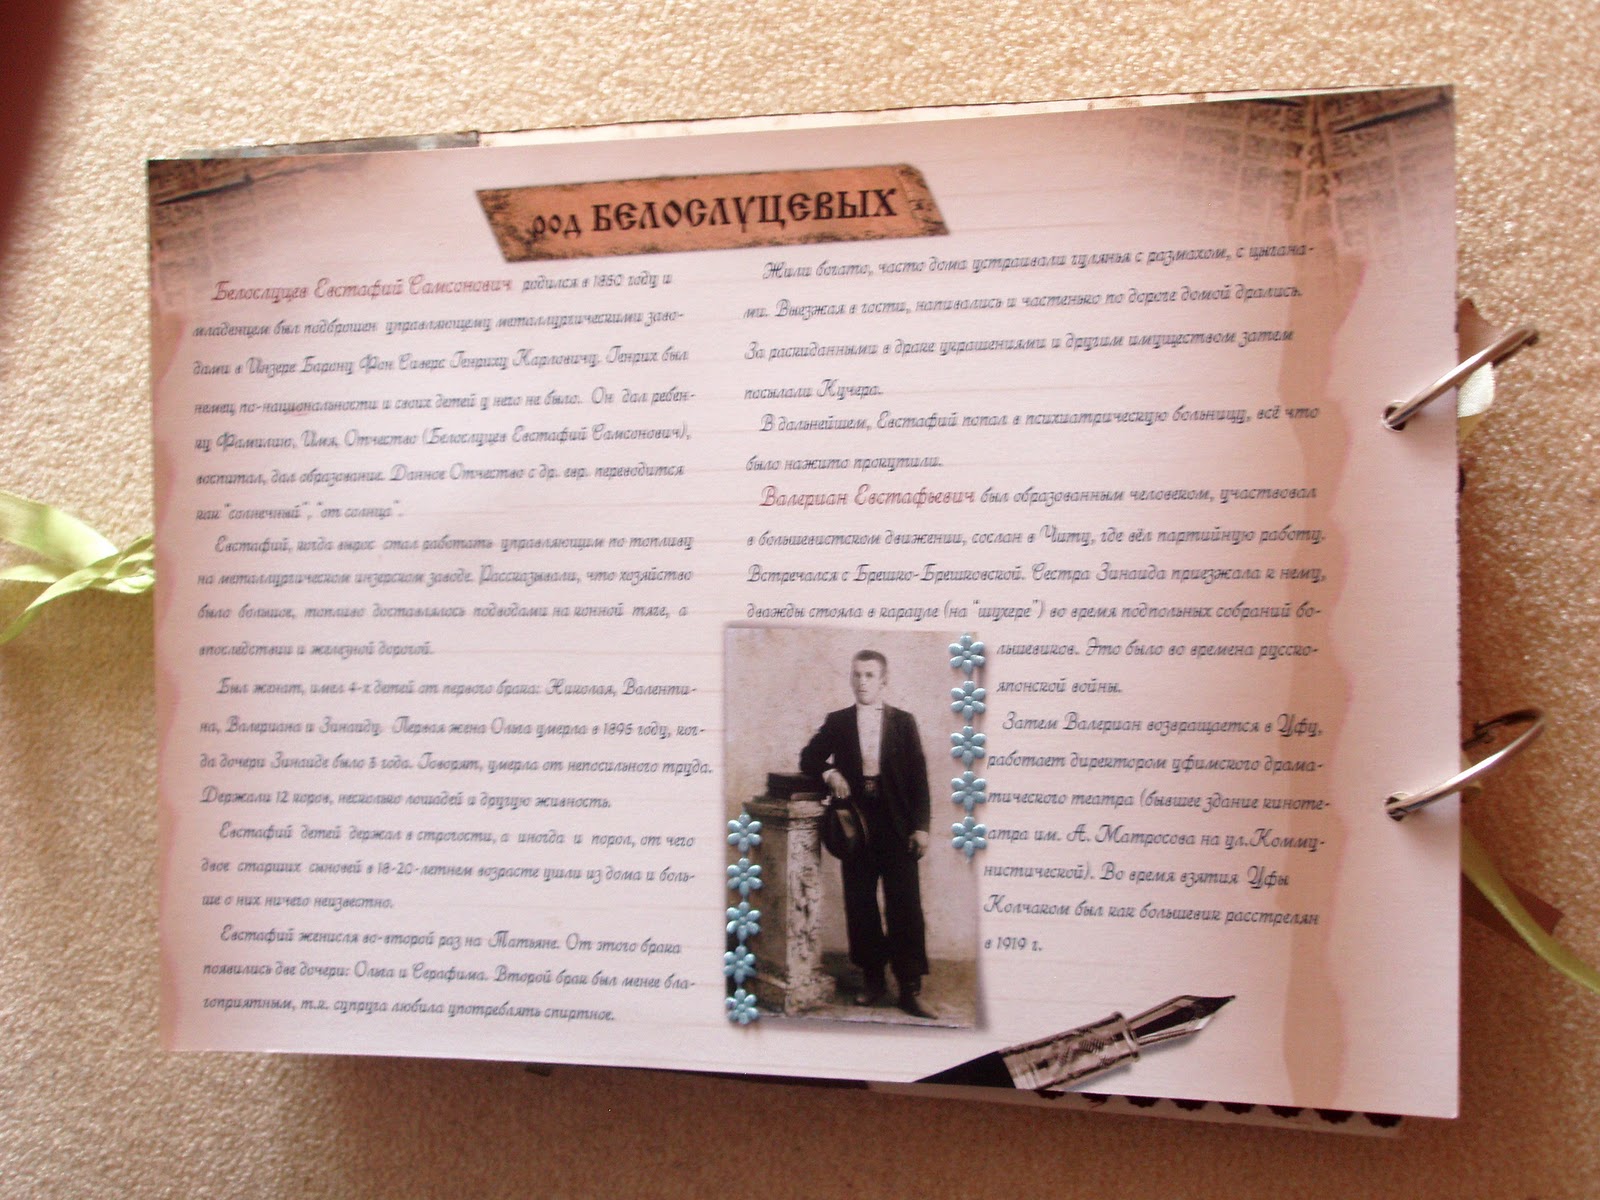 род БЕЛОСЛУЦЕВЫХ
Белослуцев Евстафий Самсонович родился в 1850 году и
младенцем был подброшен управляющему металлургическими заво-
дами в Инзере Барону Фон Саверс Генриху Карловичу. Генрих был
немец по-национальности и своих детей у него не было. Он дал ребен-
ку Фамилию, Имя, Отчество (Белослуцев Евстафий Самсонович),
воспитал, дал образование. Данное Отчество с др. евр. переводится
как "солнечный", "от солнца".
Евстафий, когда вырос стал работать управляющим по топливу
на металлургическом инзерском заводе. Рассказывали, что хозяйство
было большое, топливо доставлялось подводами на конной тяге, а
впоследствии и железной дорогой.
Был женат, имел 4-х детей от первого брака: Николая, Валенти-
на, Валериана и Зинаиду. Первая жена Ольга умерла в 1895 году, ког-
да дочери Зинаиде было 3 года. Говорят, умерла от непосильного труда.
Держали 12 коров, несколько лошадей и другую живность.
Евстафий детей держал в строгости, а иногда и порол, от чего
двое старших сыновей в 18-20-летнем возрасте ушли из дома и боль-
ше о них ничего неизвестно.
Евстафий женисля во-второй раз на Татьяне. От этого брака
появились две дочери: Ольга и Серафима. Второй брак был менее бла-
гоприятным, т.к. супруга любила употреблять спиртное.
Жили богато, часто дома устраивали гулянья с размахом, с цыгана-
ми. Выезжая в гости, напивались и частенько по дороге домой дрались.
За раскиданными в драке украшениями и другим имуществом затем
посылали Кучера.
В дальнейшем, Евстафий попал в психиатрическую больницу, всё что
было нажито прокутили.
Валериан Евстафьевич был образованным человеком, участвовал
в большевистском движении, сослан в Читу, где вёл партийную работу.
Встречался с Брешко-Брешковской. Сестра Зинаида приезжала к нему,
дважды стояла в карауле (на "шухере") во время подпольных собраний бо-
льшевиков. Это было во времена русско-
японской войны.
Затем Валериан возвращается в Уфу,
работает директором уфимского драма-
тического театра (бывшее здание киноте-
атра им. А. Матросова на ул.Комму-
нистической). Во время взятия Уфы
Колчаком был как большевик расстрелян
в 1919 г.